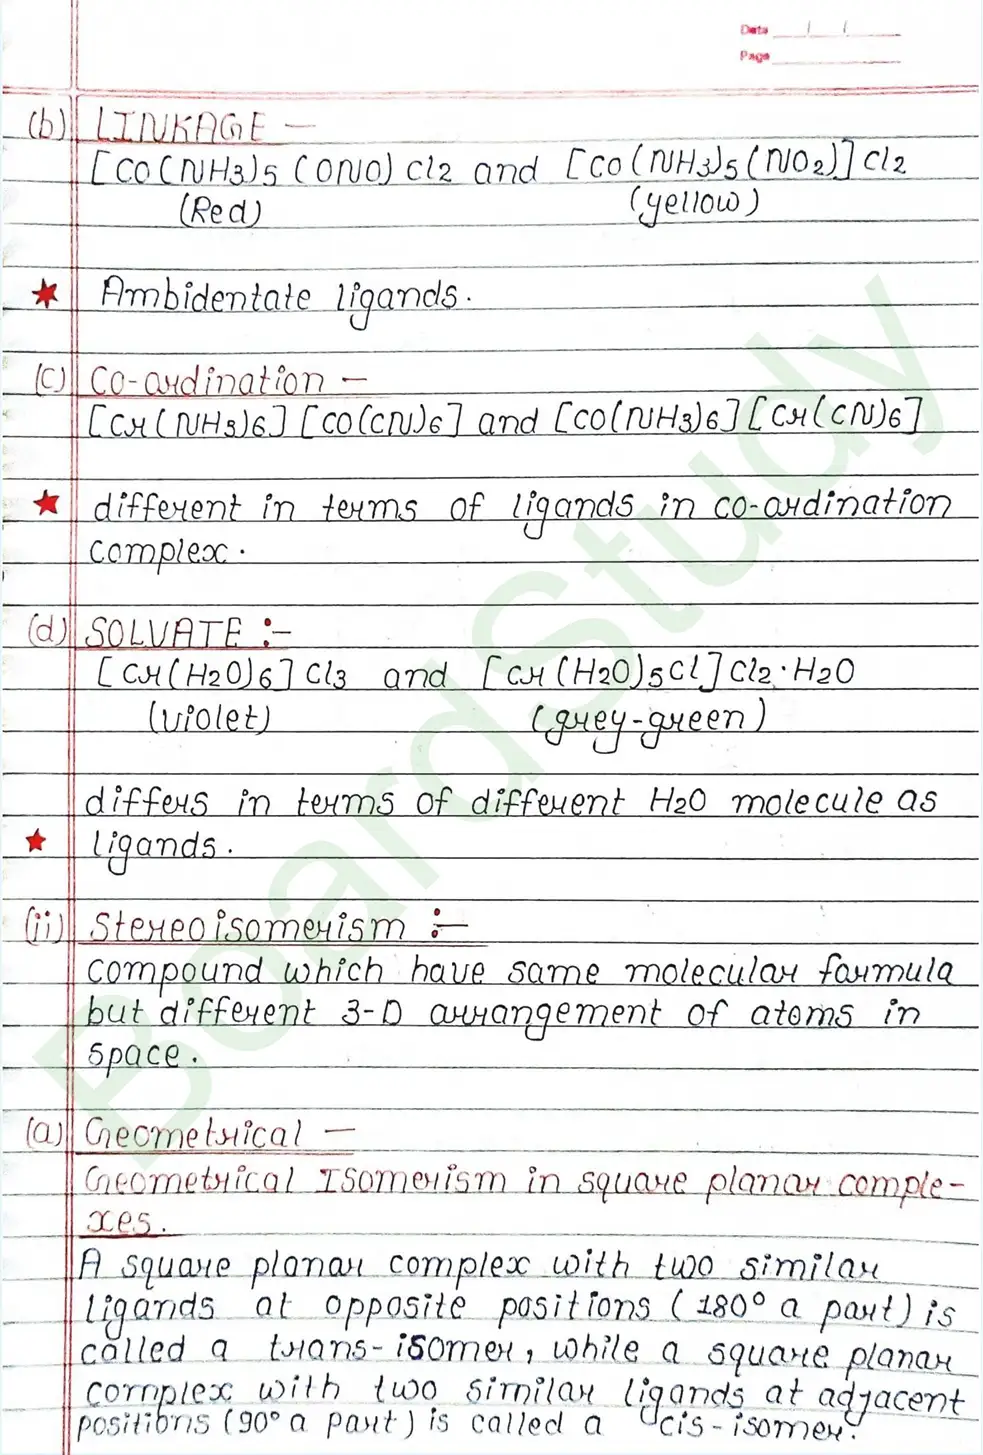 Date / /
Page
(b) LINKAGE —
[CO(NH3)5 (ONO) Cl2 and [CO(NH3)5(NO2)]Cl2
(Red) (yellow)
★ Ambidentate ligands.
(c) Co-ordination —
[Cr(NH3)6] [CO(CN)6] and [CO(NH3)6][Cr(CN)6]
★ different in terms of ligands in co-ordination
complex.
(d) SOLVATE :-
[Cr(H2O)6] Cl3 and [Cr(H2O)5Cl]Cl2·H2O
(violet) (grey-green)
differs in terms of different H2O molecule as
★ ligands.
(ii) Stereoisomerism :-
compound which have same molecular formula
but different 3-D arrangement of atoms in
space.
(a) Geometrical —
Geometrical Isomerism in square planar comple-
xes.
A square planar complex with two similar
ligands at opposite positions (180° a part) is
called a trans-isomer, while a square planar
complex with two similar ligands at adjacent
positions (90° a part) is called a cis-isomer.
BoardStudy